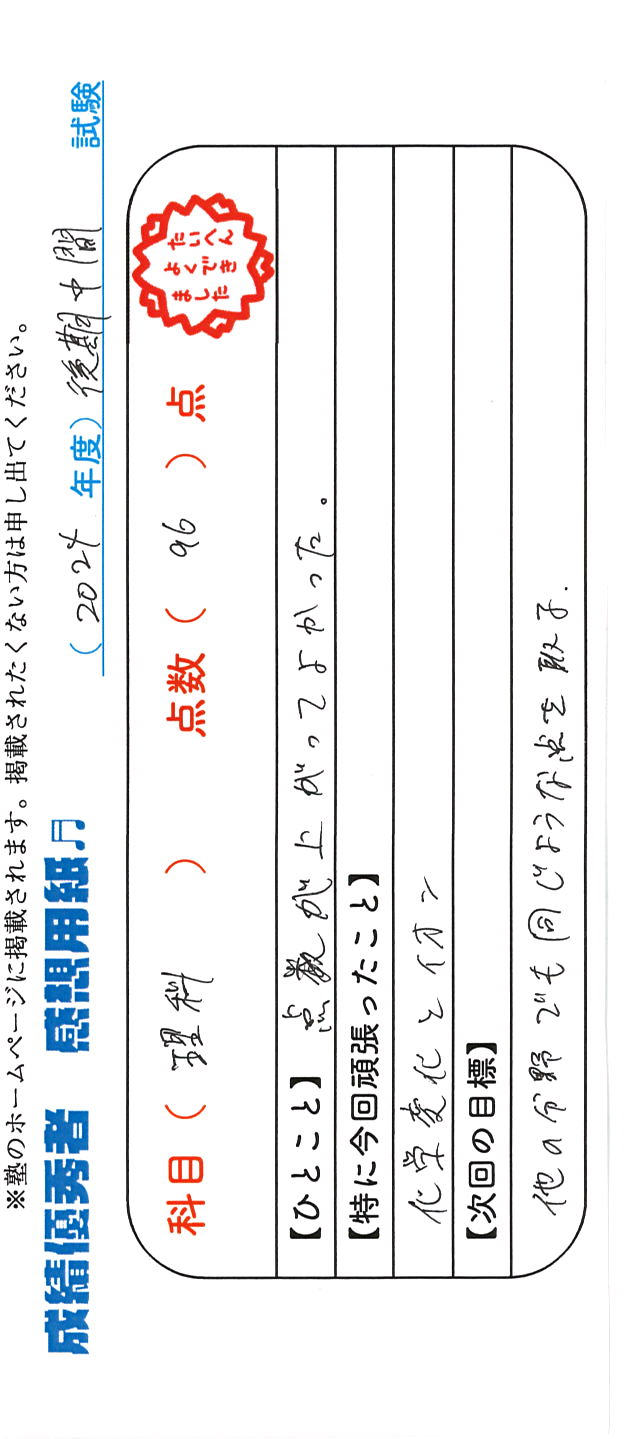 ※塾のホームページに掲載されます。掲載されたくない方は申し出てください。
成績優秀者 感想用紙♬
（2024 年度）後期中間 試験
科目（理科） 点数（96）点
たいへん
よくでき
ました
【ひとこと】点数が上がってよかった。
【特に今回頑張ったこと】
化学変化とイオン
【次回の目標】
他の分野でも同じような点を取る.